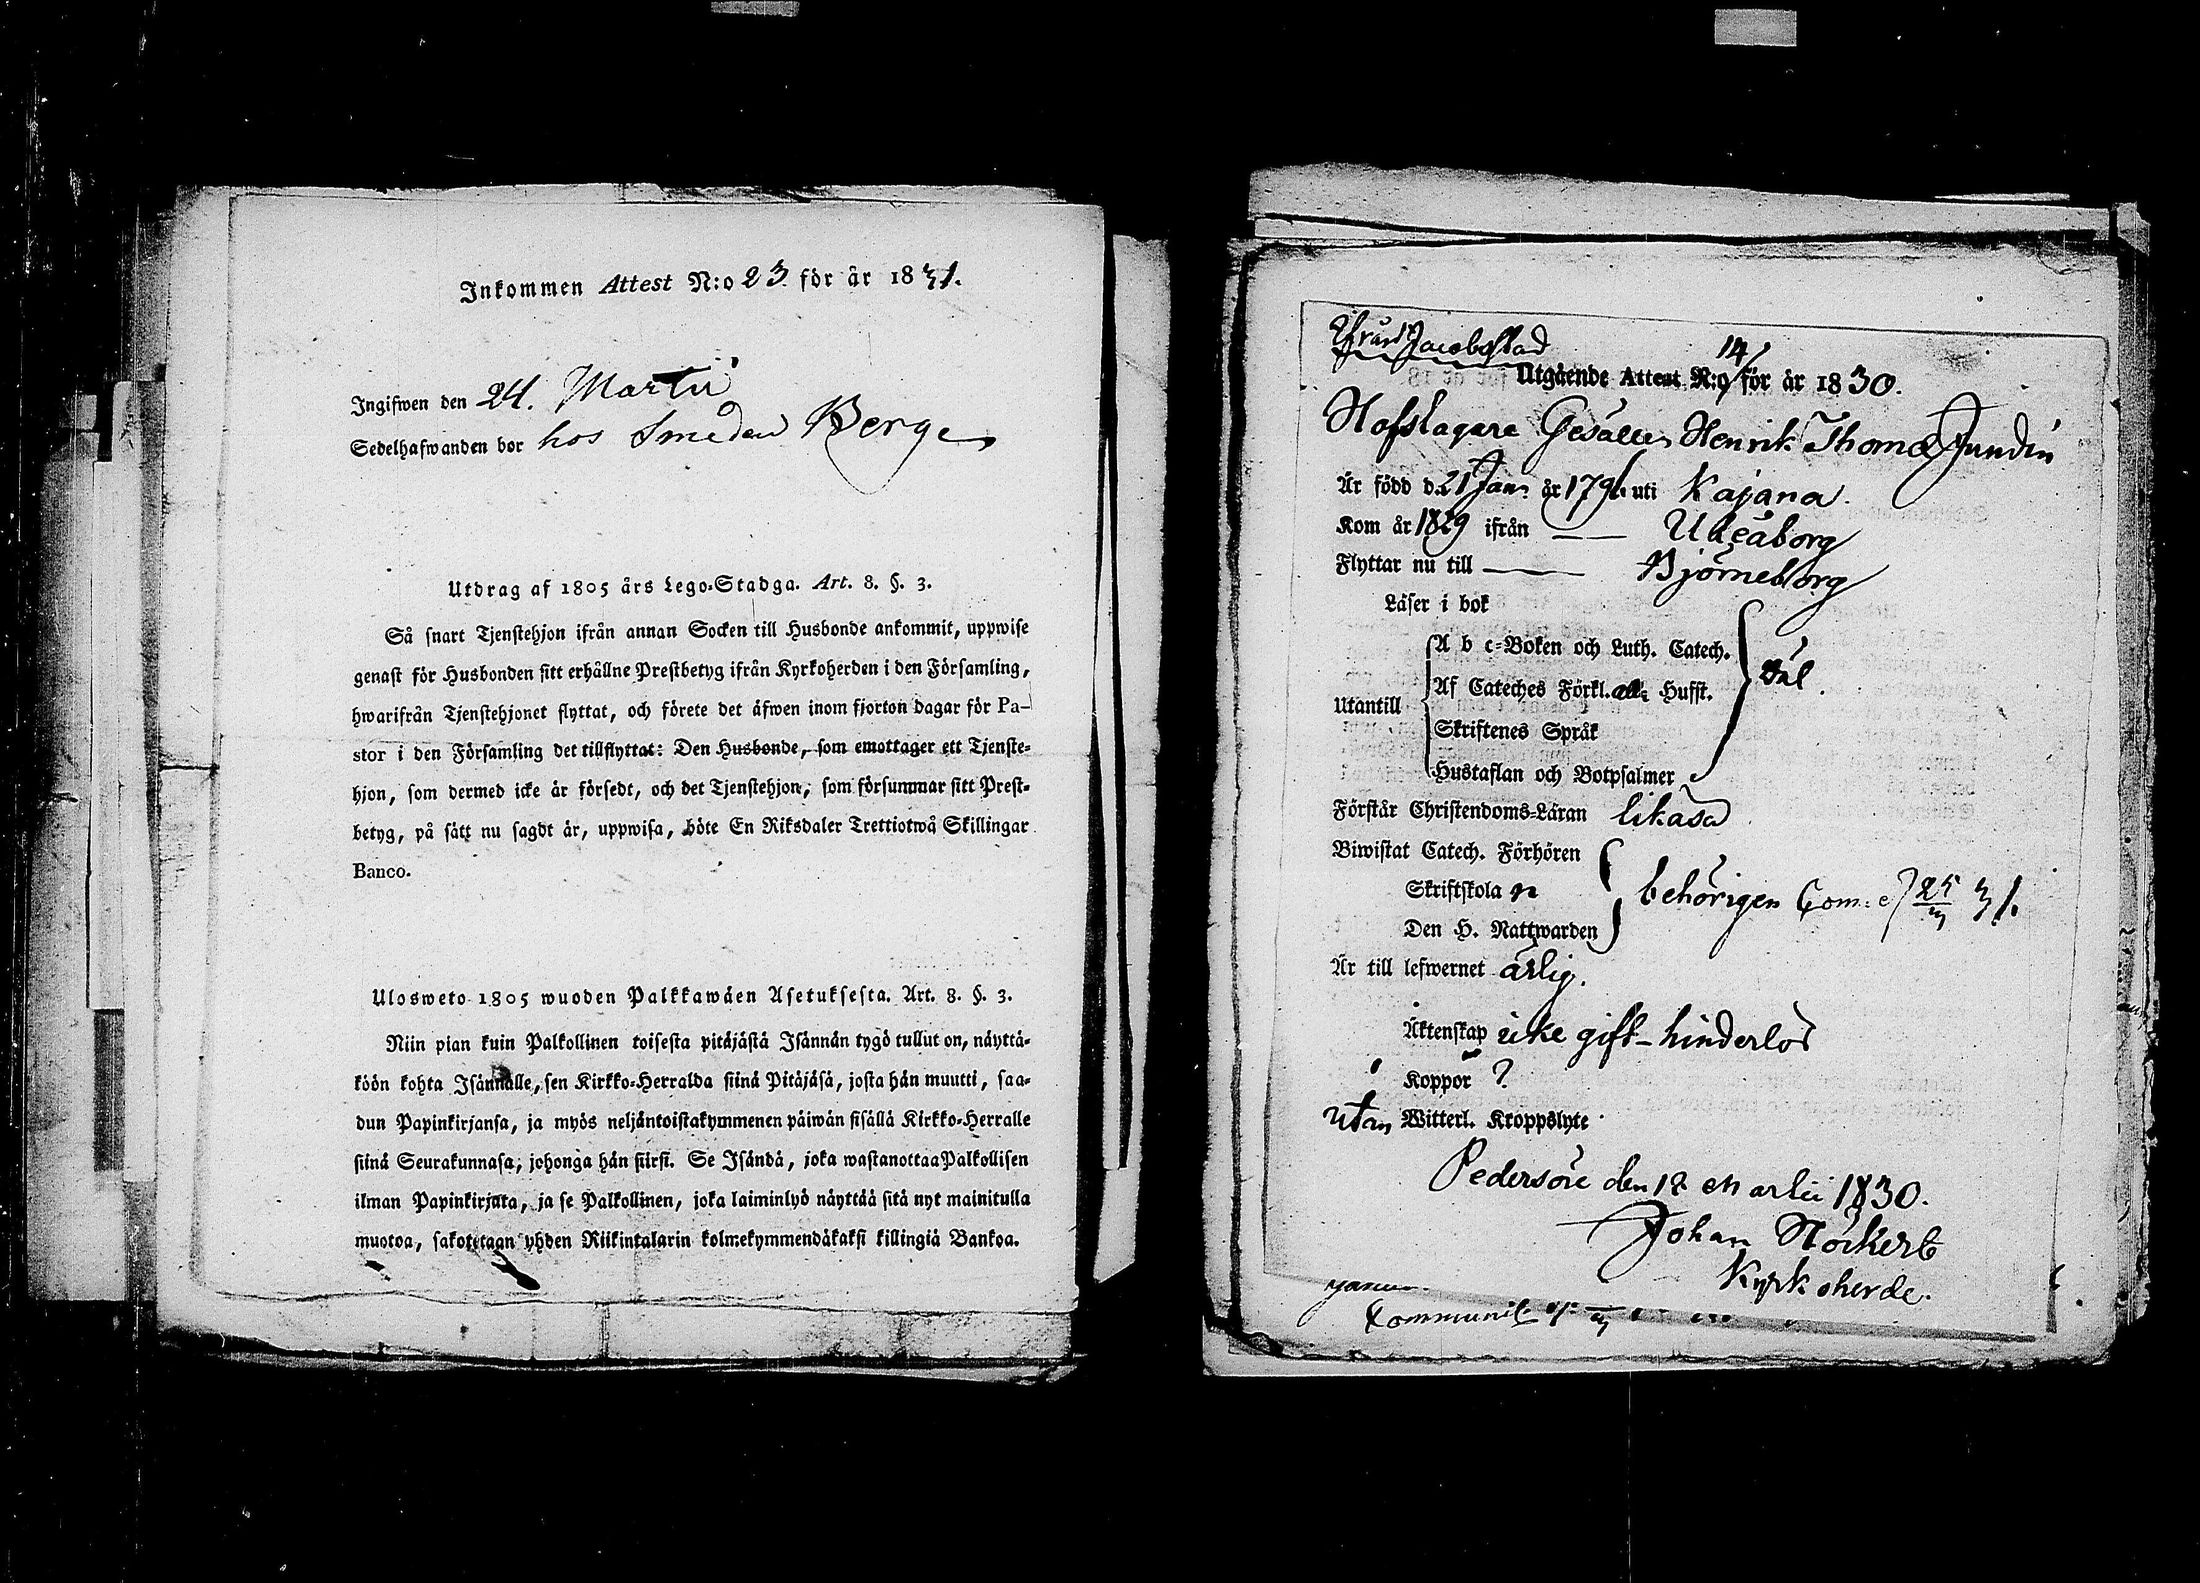 Inkommen Attest N:o 23 för år 1831.
Ingifwen den 24. Martii
Sedelhafwanden bor hos Smeden Berge
Utdrag af 1805 års Lego-Stadga. Art. 8. §. 3.
Så snart Tjenstehjon ifrån annan Socken till Husbonde ankommit, uppwise
genast för Husbonden sitt erhållne Prestbetyg ifrån Kyrkoherden i den Församling,
hwarifrån Tjenstehjonet flyttat, och förete det äfwen inom fjorton dagar för Pa-
stor i den Församling det tillflyttat: Den Husbonde, som emottager ett Tjenste-
hjon, som dermed icke är försedt, och det Tjenstehjon, som försummar sitt Prest-
betyg, på sätt nu sagdt är, uppwisa, böte En Riksdaler Trettiotwå Skillingar
Banco.
Ulosweto 1805 wuoden Palkkawäen Asetuksesta. Art. 8. §. 3.
Niin pian kuin Palkollinen toisesta pitäjästä Isännän tygö tullut on, näyttä-
köön kohta Isännälle, sen Kirkko-Herralda siinä Pitäjäsä, josta hän muutti, saa-
dun Papinkirjansa, ja myös neljäntoistakymmenen päiwän sisällä Kirkko-Herralle
siinä Seurakunnasa, johonga hän siirsi. Se Isändä, joka wastanottaa Palkollisen
ilman Papinkirjata, ja se Palkollinen, joka laiminlyö näyttää sitä nyt mainitulla
muotoa, sakotetaan yhden Riikintalarin kolmekymmendäkaksi killingiä Bankoa.
Ifrån Jacobstad
Utgående Attest N:o 14 för år 1830.
Hofslagare Gesällen Henrik Thomæ Jundin
Är född d. 21 Jan. år 1796 uti Kajana.
Kom år 1829 ifrån Uleåborg
Flyttar nu till Björneborg
Läser i bok
A b c-Boken och Luth. Catech.
Af Cateches Förkl. Hufst. Väl.
Utantill
Skriftenes Språk
Hustaflan och Botpsalmer
Förstår Christendoms-Läran likaså
Biwistat Catech. Förhören
Skriftskolan behörigen Com: 25/3 31.
Den H. Nattwarden
Är till lefwernet ärlig.
Äktenskap icke gift - hinderlös
Koppor ?
utan Witterl. Kroppslyte
Pedersöre den 12 Martii 1830.
Johan Höckert
Kyrkoherde.
Communic.